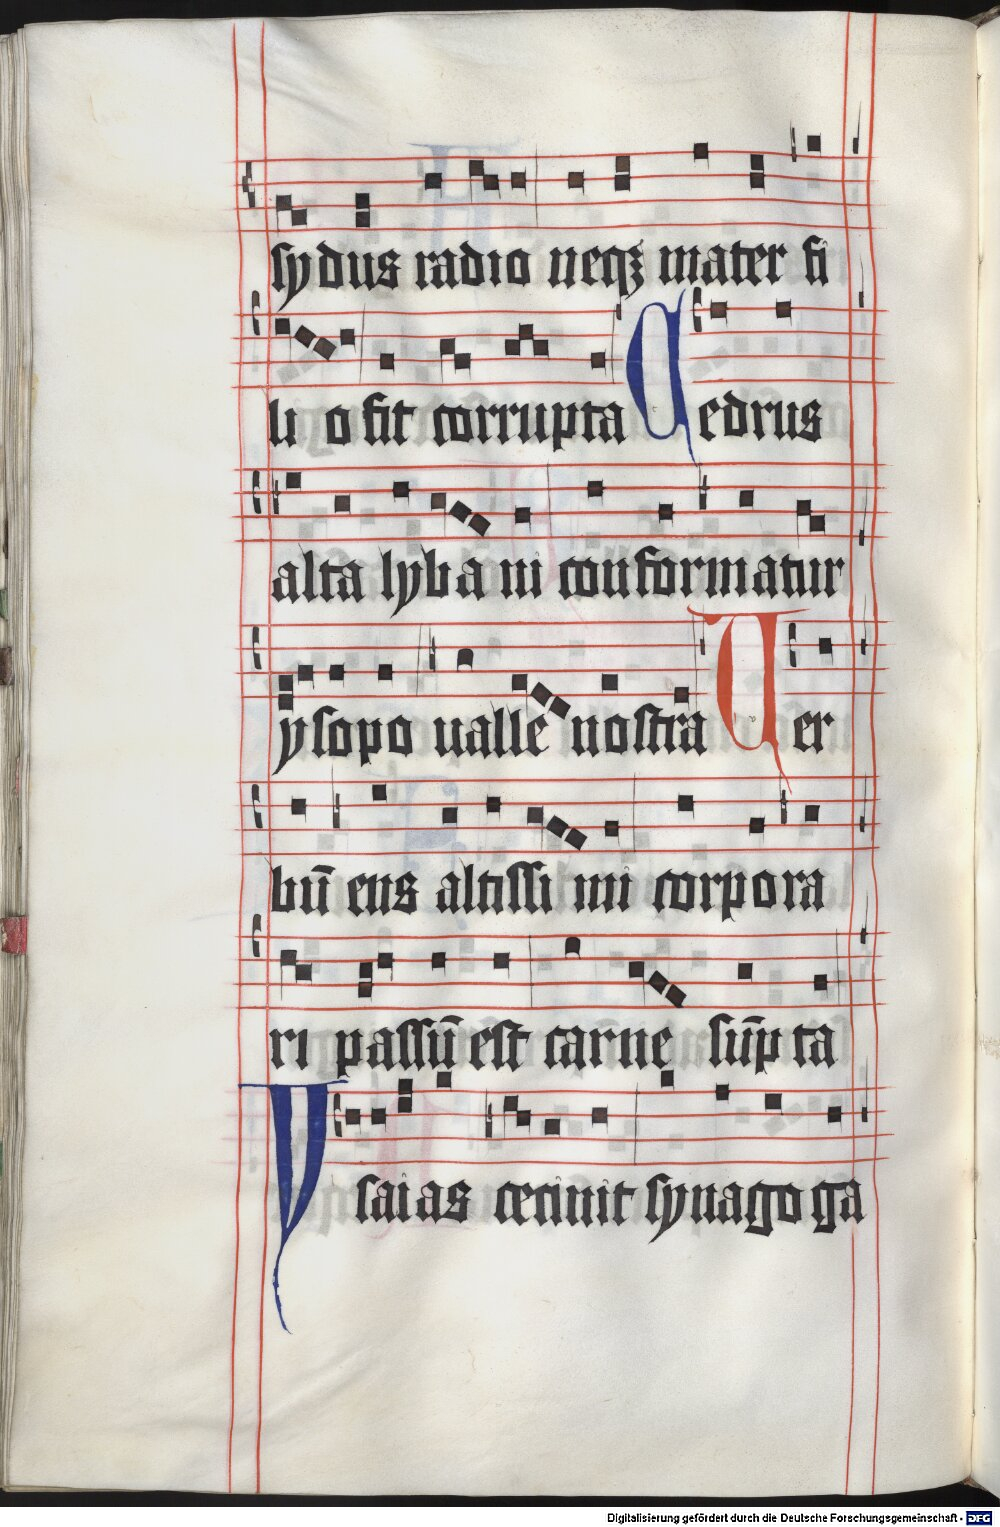 sydus radio neqꝫ mater fi
li o fit corrupta Cedrus
alta lyba ni conformatur
ysopo ualle nostra Uer
bū ens altissi mi corpora
ri passū est carne sūp ta
Ysaias cecinit synagoga
Digitalisierung gefördert durch die Deutsche Forschungsgemeinschaft - DFG